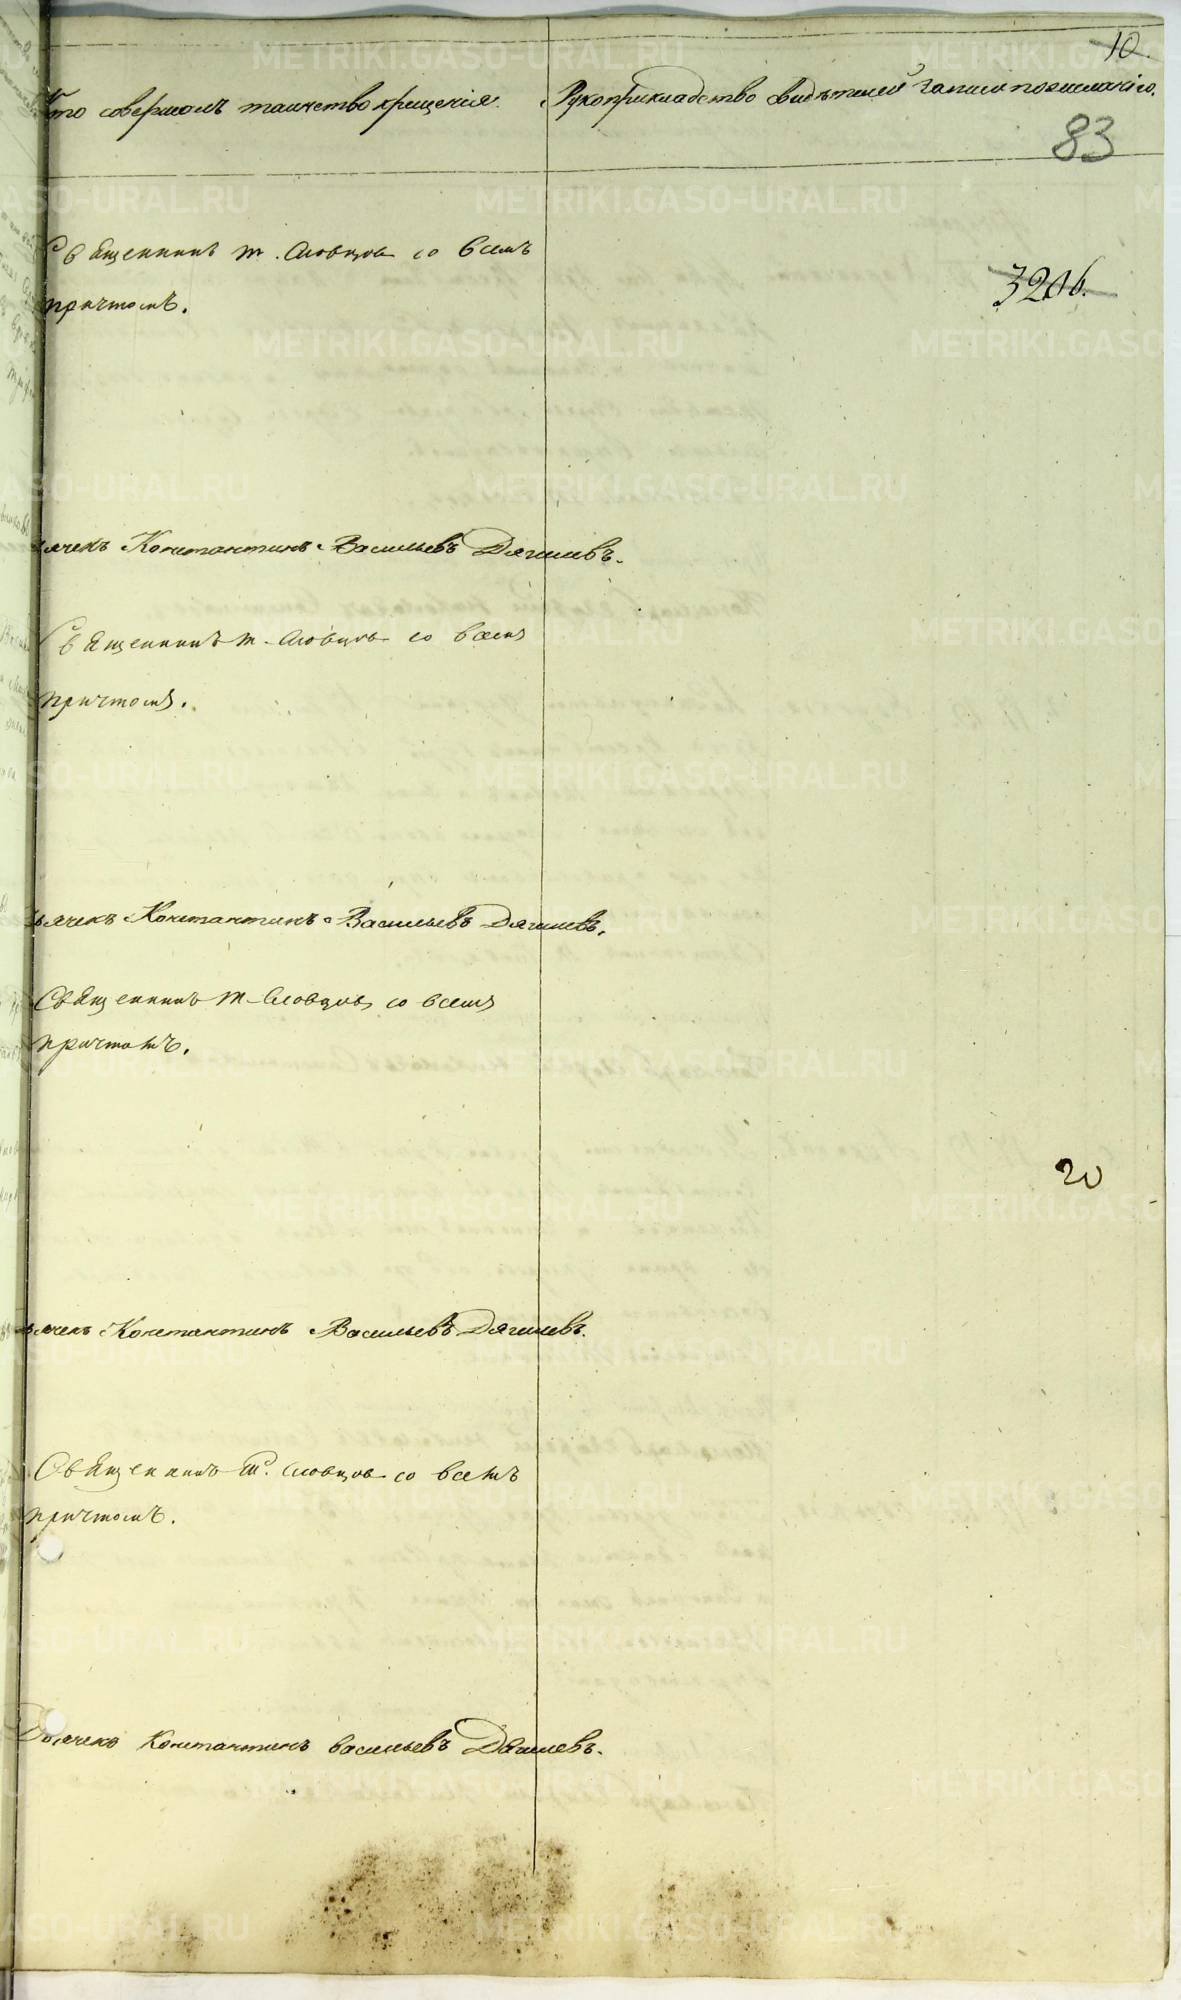 10.
Кто совершалъ таинство крещенія.
Рукоприкладство свидѣтелей записи по желанію.
83
Священникъ Т. Словцовъ со всемъ
причтомъ.
3206.
Дьячекъ Константинъ Васильевъ Дягилевъ.
Священникъ Т. Словцовъ со всемъ
причтомъ.
Дьячекъ Константинъ Васильевъ Дягилевъ.
Священникъ Т. Словцовъ со всемъ
причтомъ.
20
Дьячекъ Константинъ Васильевъ Дягилевъ.
Священникъ Т. Словцовъ со всемъ
причтомъ.
Дьячекъ Константинъ Васильевъ Дягилевъ.
METRIKI.GASO-URAL.RU